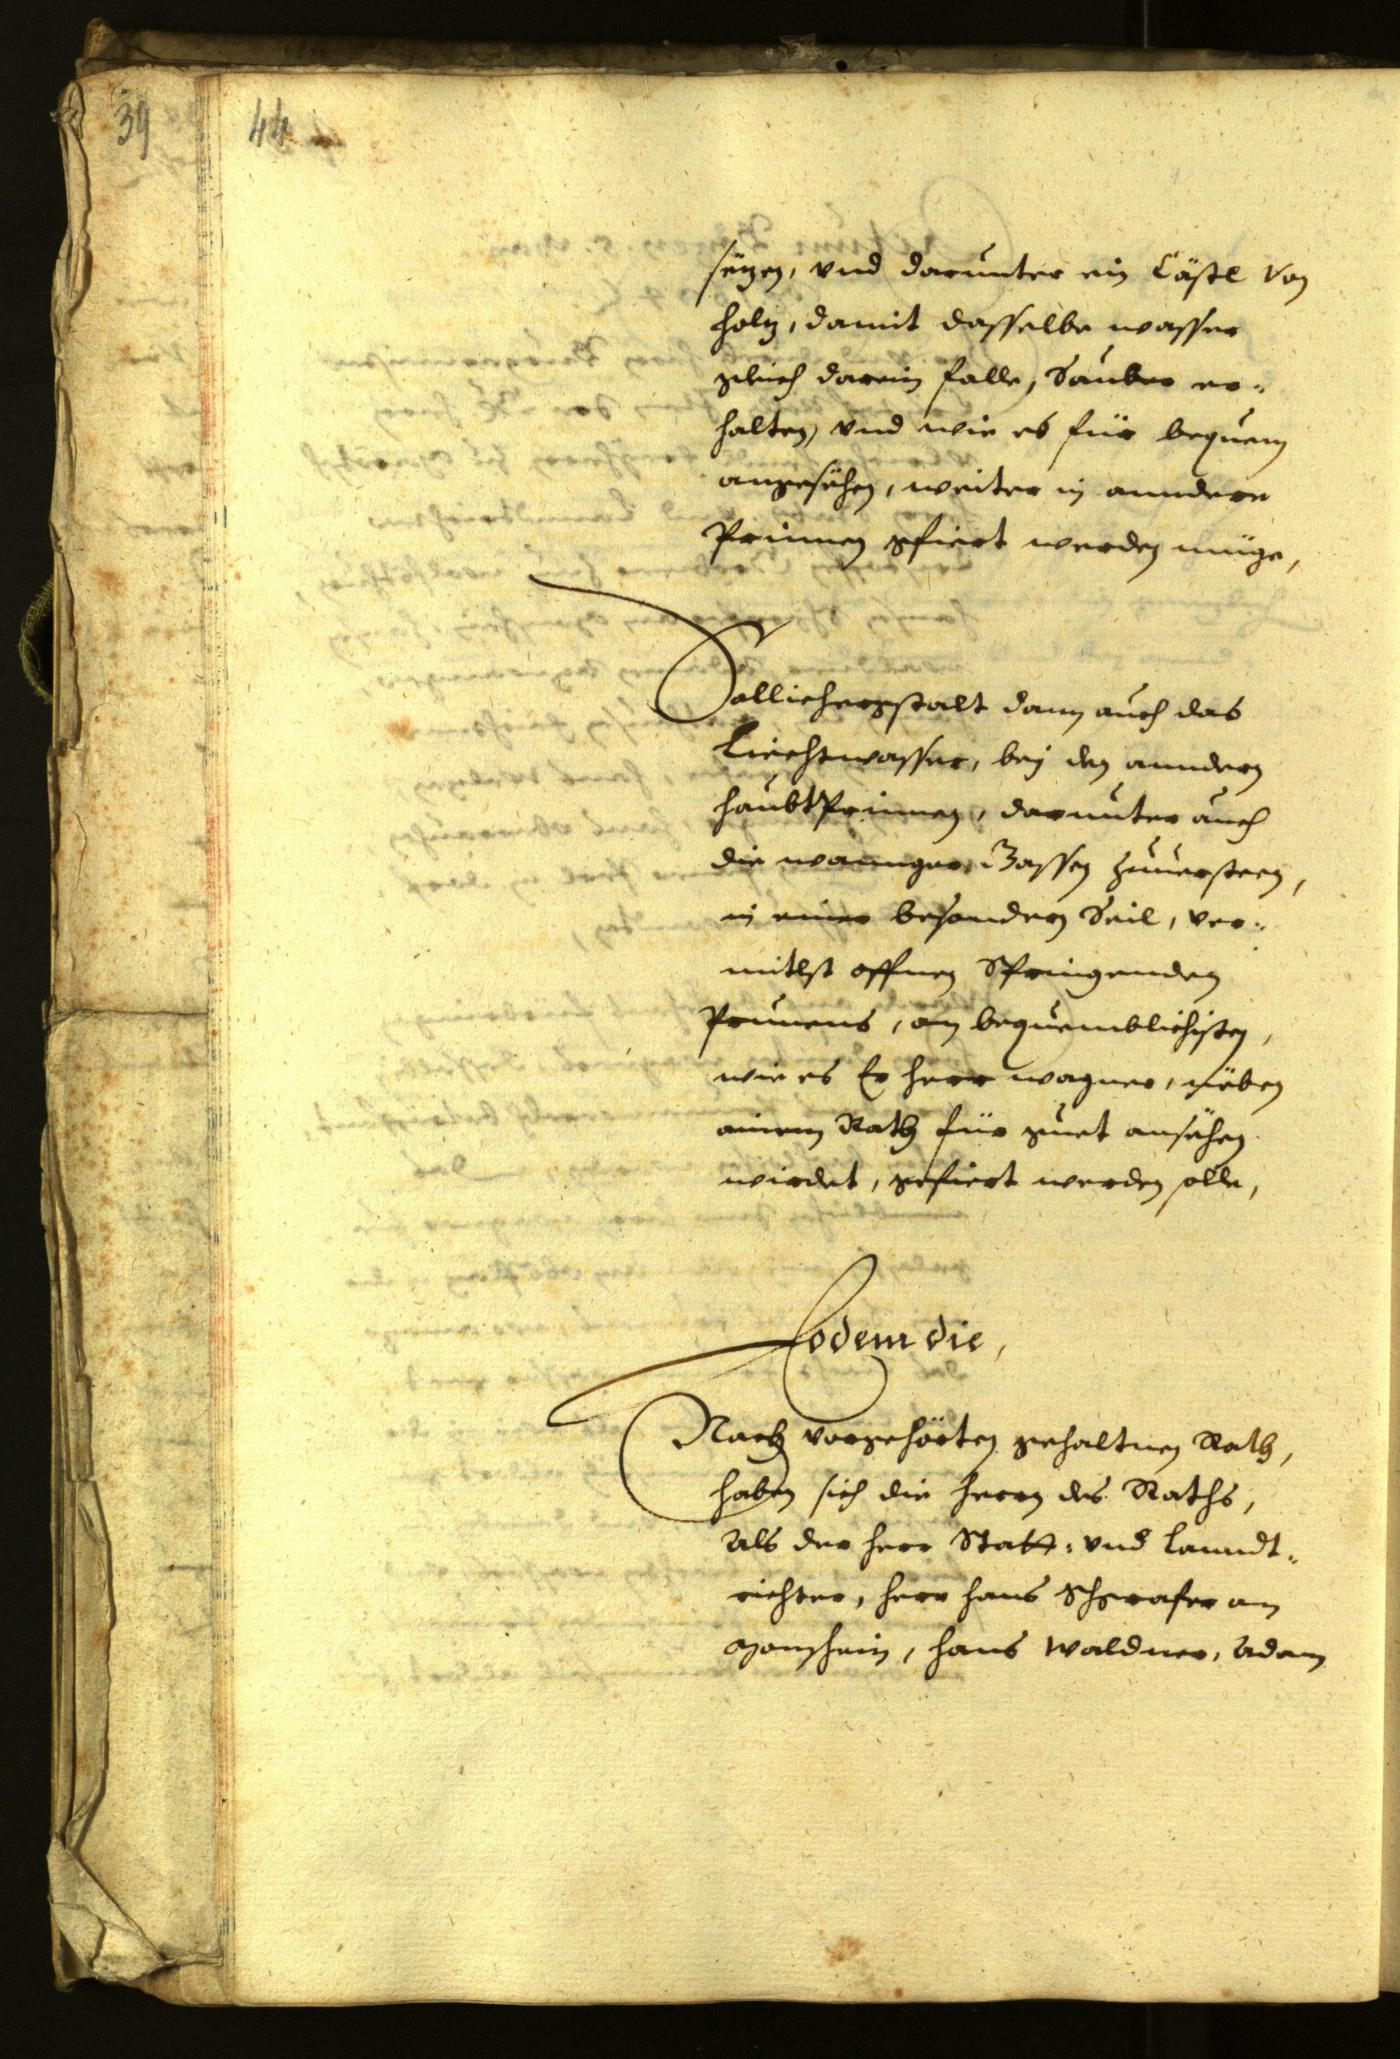 39
44
sezen, vnd darunter ein Cästl von
holz, damit dasselbe wasser
gleich darein falle, Sauber er-
halten, vnd wie es für bequem
angesehen, weiter in anndere
Prünnen gfiert werden müge,
Sollichergstalt dann auch das
Liechtwasser, bej den anndern
haubtPrünnen, darunter auch
die wannger Gassen zuuersteen,
in einer besondern Seil, ver-
mitlst offnen Springenden
Prunens, am bequemblichisten,
wie es Er herr wagner, neben
ainem Rath für guet ansehen
wirdet, gefiert werden solle,
Eodem die,
Nach vorgehörten gehaltnen Rath,
haben sich die herrn des Raths,
Als der herr Statt- vnd Lanndt-
richter, herr hans Schgrafer am
hans Waldner, Adam